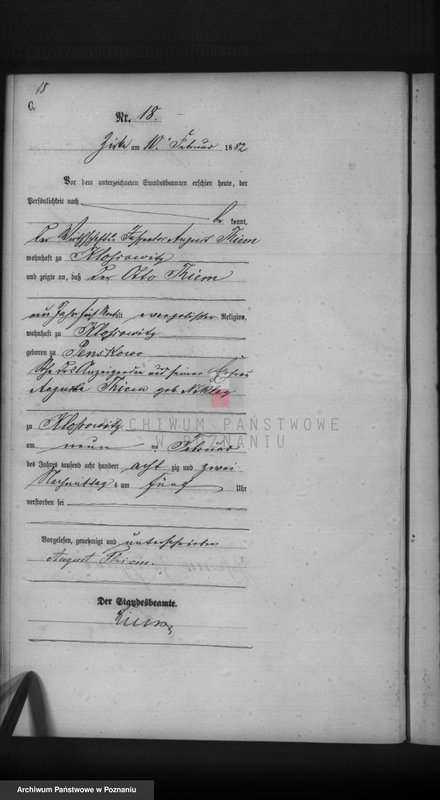 18
C.
Nr. 18.
Zirke am 10. Februar 1882
Vor dem unterzeichneten Standesbeamten erschien heute, der
Persönlichkeit nach
be kannt,
der Wirthschafts Inspector August Thiem
wohnhaft zu Klossowitz
und zeigte an, daß der Otto Thiem
neun Jahr fünf Monat alt evangelischer Religion,
wohnhaft zu Klossowitz
geboren zu Penskowo
Sohn des Anzeigenden und seiner Ehefrau
Auguste Thiem geb.
zu Klossowitz
am neun ten Februar
des Jahres tausend acht hundert acht zig und zwei
Nachmittag s um fünf Uhr
verstorben sei
Vorgelesen, genehmigt und unterschrieben
August Thiem.
Der Standesbeamte.
ARCHIWUM PAŃSTWOWE
W POZNANIU
Archiwum Państwowe w Poznaniu